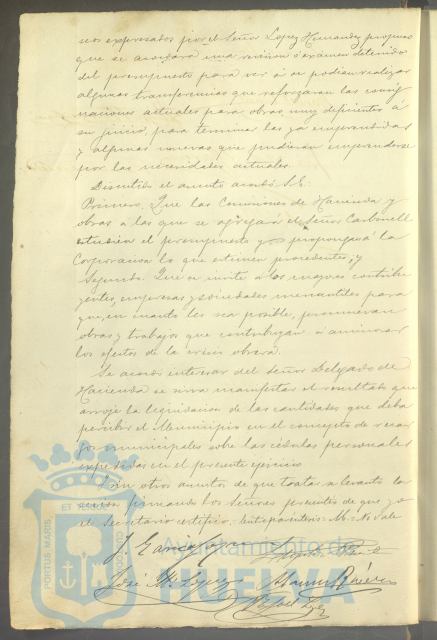 seos expresados por el Señor Lopez Hernandez propuso
que se acordara una revision ó exámen detenido
del presupuesto para ver si se podian realizar
algunas transferencias que reforzaran las consig
naciones actuales para obras, muy deficientes á
su juicio, para terminar las ya emprendidas
y algunas nuevas que pudieran emprenderse
por las necesidades actuales.
Discutido el asunto acordó S.E.:
Primero. Que las Comisiones de Hacienda y
obras á las que se agregará el Señor Carbonell
estudien el presupuesto y propongan á la
Corporacion lo que estimen procedente; y
Segundo. Que se invite a los mayores contribu
yentes, empresas y sociedades mercantiles para
que, en cuanto les sea posible, promuevan
obras y trabajos que contribuyan á aminorar
los efectos de la crisis obrera.
Se acordó interesar del Señor Delegado de
Hacienda se sirva manifestar el resultado que
arroje la liquidacion de las cantidades que deba
percibir el Municipio en el concepto de recar
gos municipales sobre las cédulas personales
expedidas en el presente ejercicio.
Y sin otros asuntos de que tratar se levantó la
sesion firmando los Señores presentes de que yo
el Secretario certifico. M. No vale
José Mª Lopez
Rafael
PORTUS MARIS ET TERRAE CUSTODIA
Ayuntamiento de
HUELVA